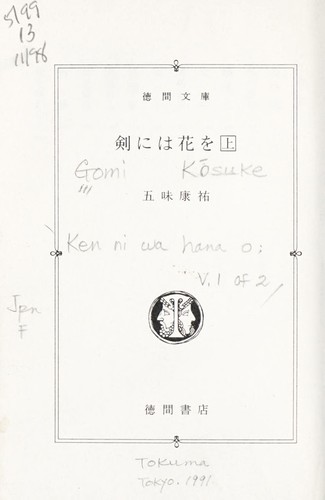 5/99
13
11/98
徳間文庫
剣には花を上
Gomi Kōsuke
五味康祐
Ken ni wa hana o;
V.1 of 2/
Jpn
F
徳間書店
Tokuma
Tokyo. 1991